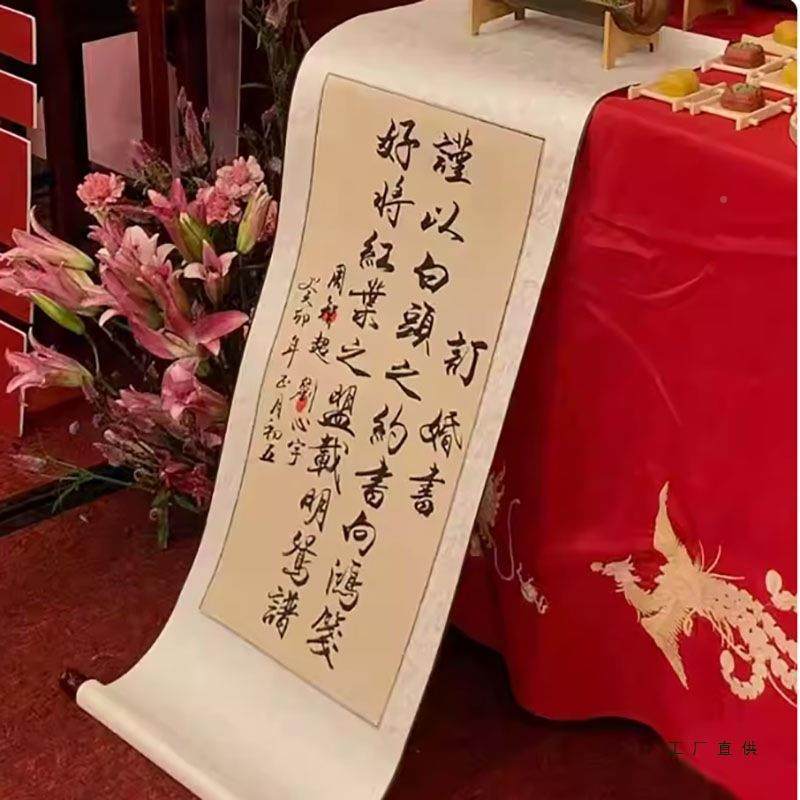 訂婚書
謹以白頭之約書向鴻箋
好將紅葉之盟載明鴛譜
周 超 劉心宇
癸卯年正月初五
工厂直供